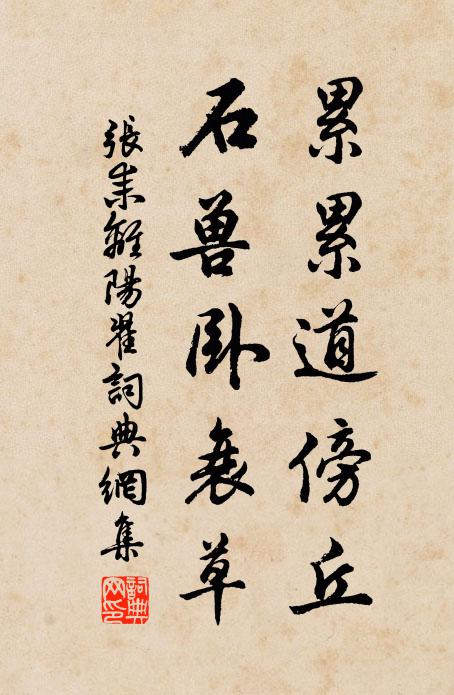 累累道傍丘
石兽卧衰草
張耒離陽翟詞典網集
詞典
网印